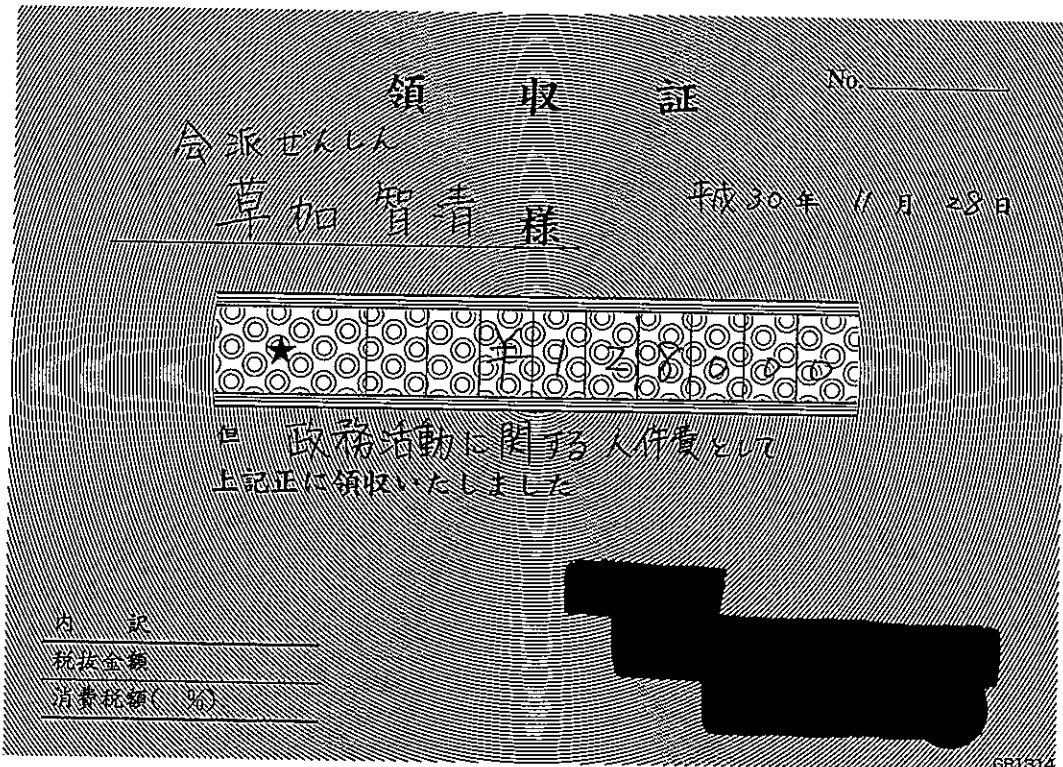 領収証 No.
会派ぜんしん
草加 智清 様 平成30年 11月 28日
★ ¥128000
但 政務活動に関する人件費として
上記正に領収いたしました
内訳
税抜金額
消費税額( %)
GB1314